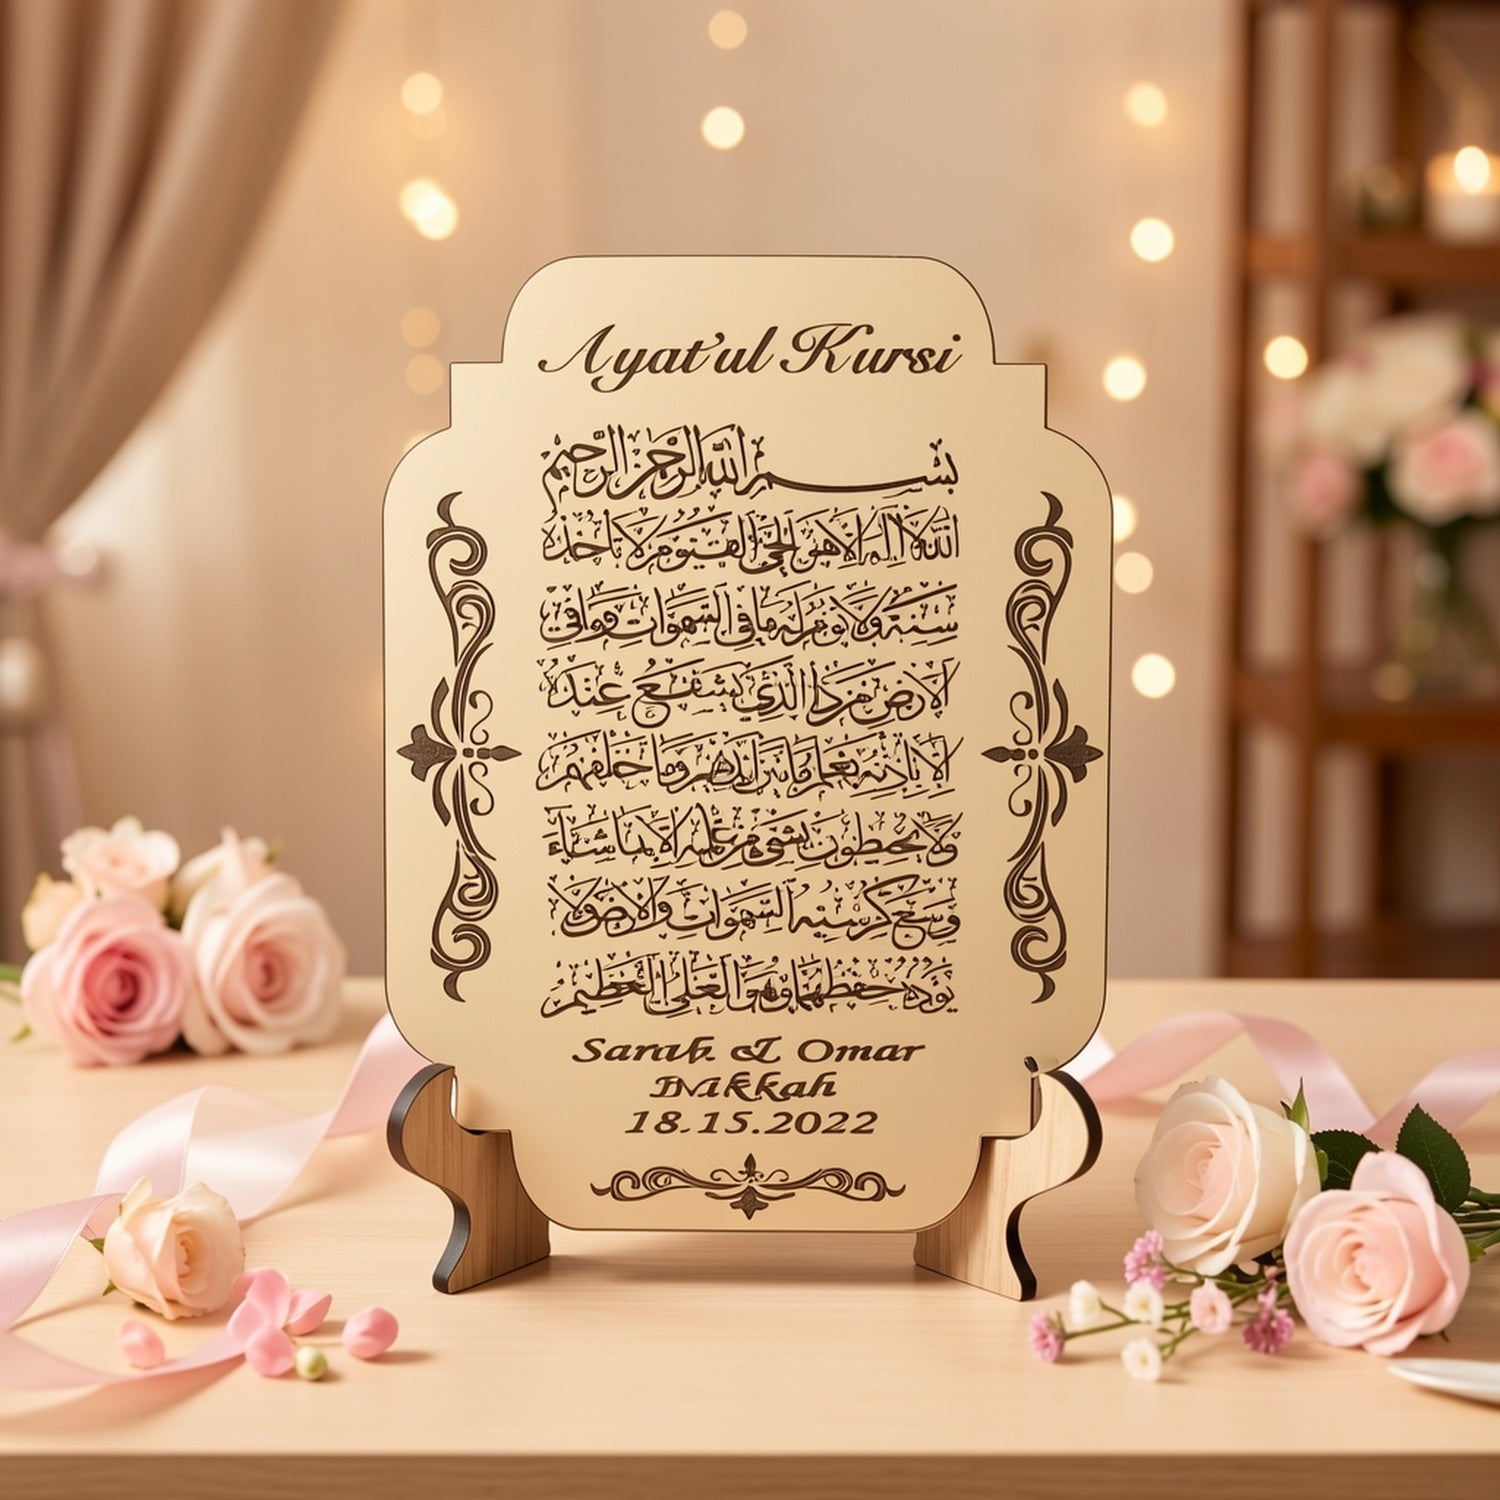 Ayat'ul Kursi
بسم الله الرحمن الرحيم
الله لا اله الا هو الحي القيوم لا تاخذه
سنة ولا نوم له ما في السموات وما في
الارض من ذا الذي يشفع عنده
الا باذنه يعلم ما بين ايديهم وما خلفهم
ولا يحيطون بشيء من علمه الا بما شاء
وسع كرسيه السموات والارض ولا
يؤده حفظهما وهو العلي العظيم
Sarah & Omar
Nikkah
18.15.2022